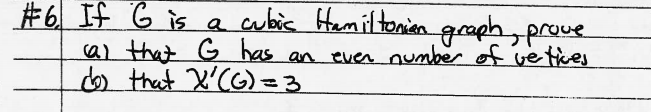 #6. If G is a cubic Hamiltonian graph, prove
(a) that G has an even number of vertices
(b) that χ'(G) = 3